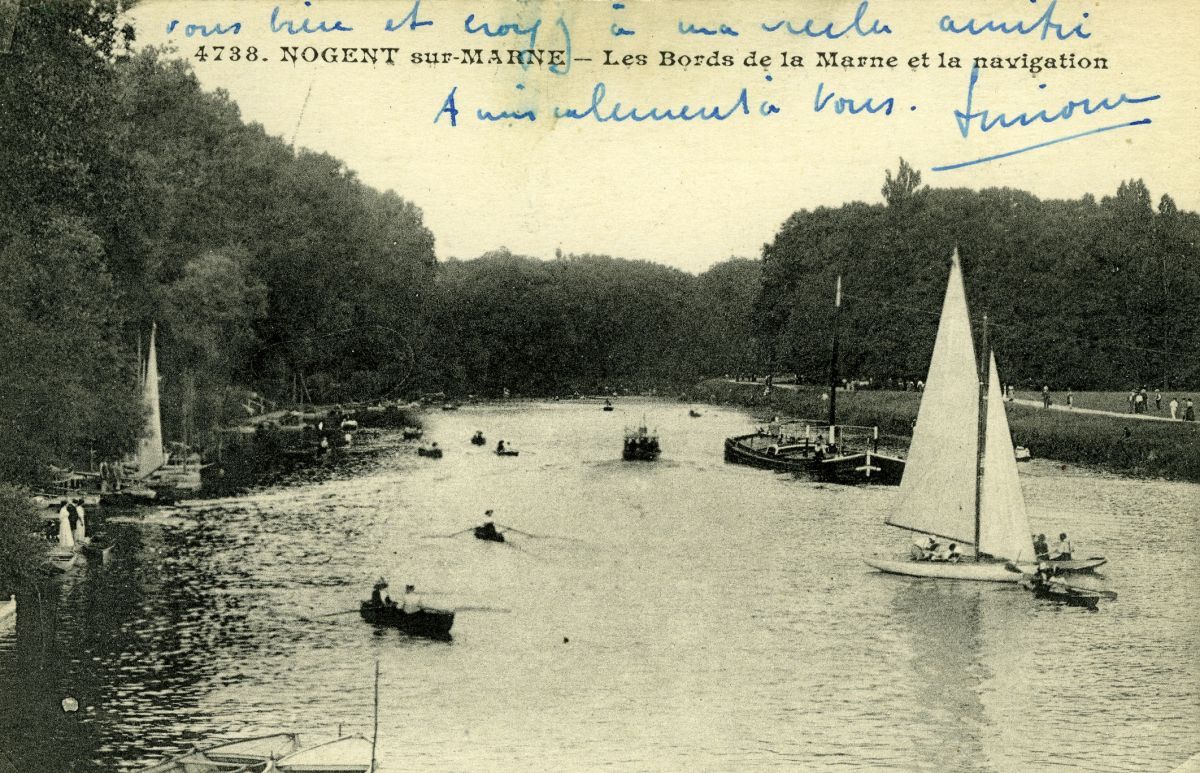 vous bien et croyez à ma réelle amitié
4738. NOGENT sur-MARNE — Les Bords de la Marne et la navigation
Amicalement à Vous. Simone